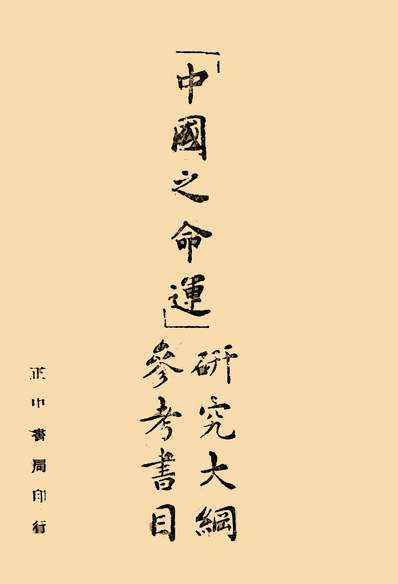 「中國之命運」
研究大綱
參考書目
正中書局印行